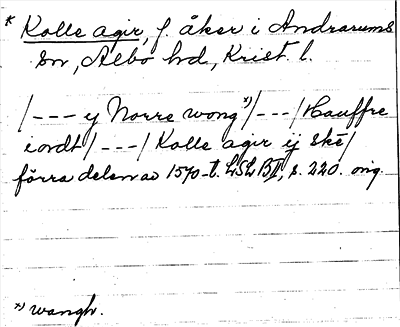 * Kolle agir, f. åker i Andrarums
sn, Albo hd, Krist. l.
/--- ij Norre wong *)/---/ Hauffre
iordt /---/ Kolle agir ij ske/
förra delen av 1570-t. LSLB II, s. 220. orig.
*) wangh.